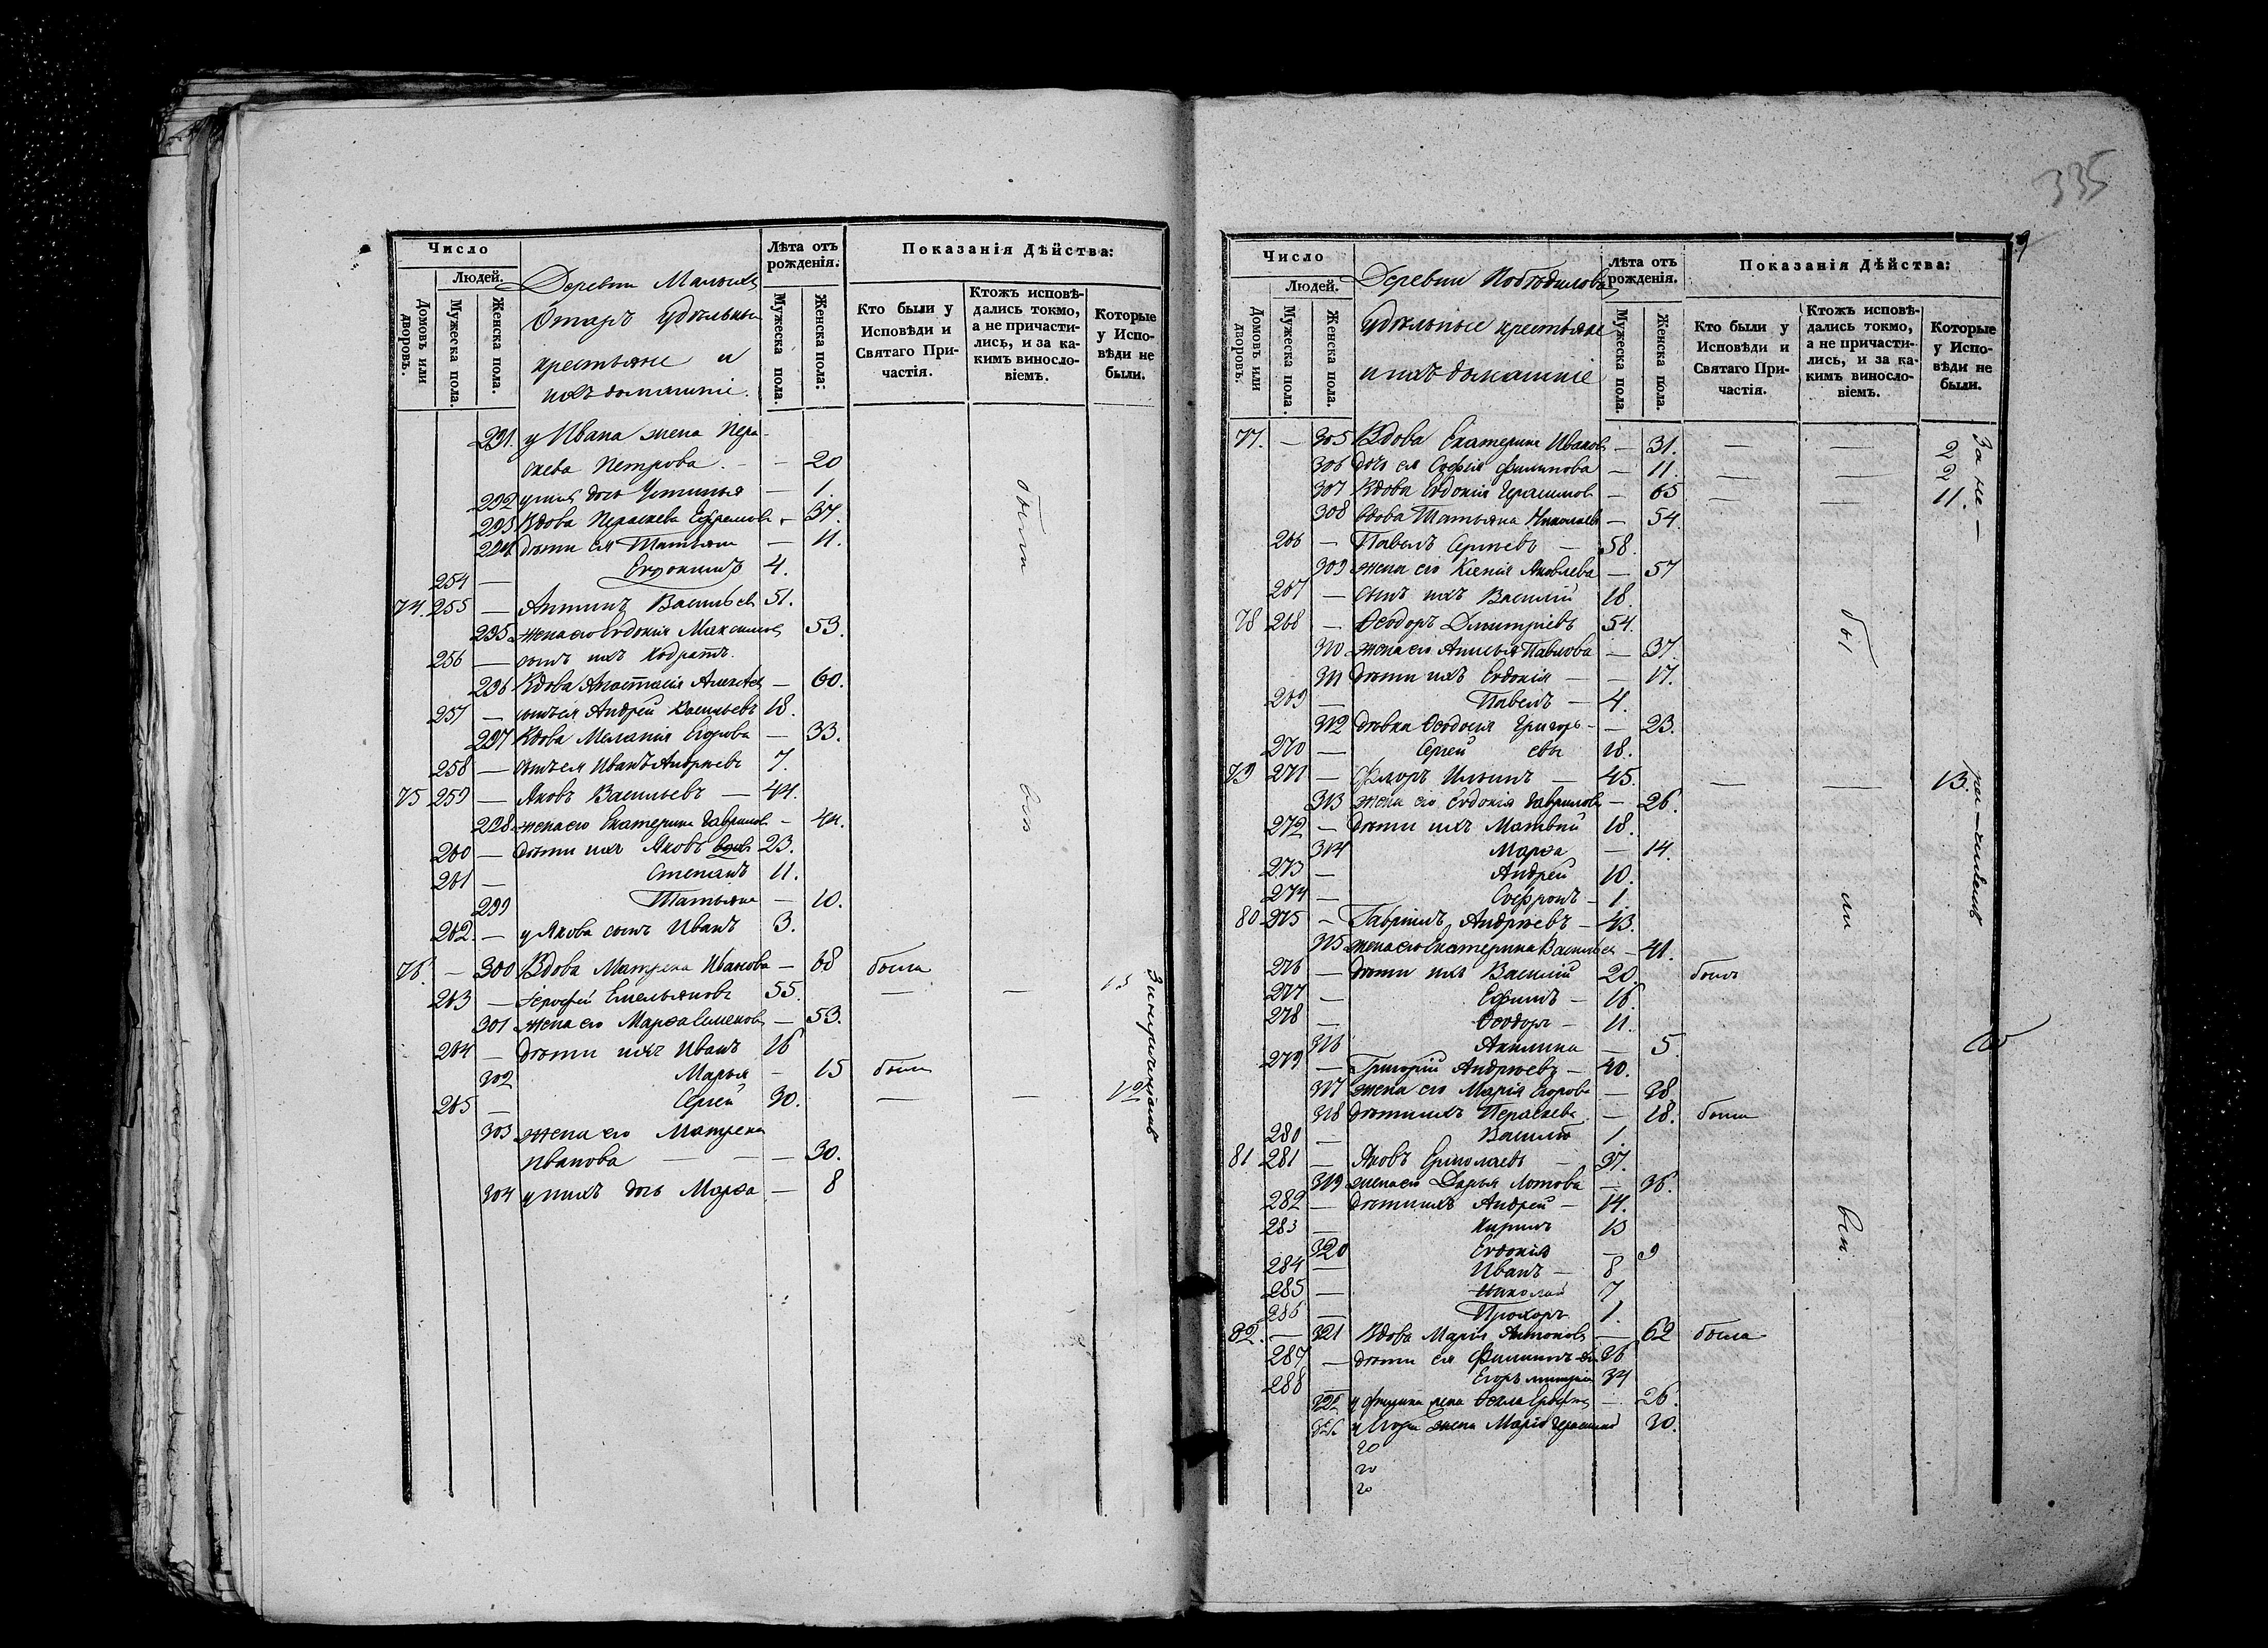 335
9
Число
Людей.
Домовъ или дворовъ.
Мужеска пола.
Женска пола.
Деревни Малыхъ
Отаръ удѣльные
крестьяне и
ихъ домашніе.
Лѣта отъ рожденія.
Мужеска пола.
Женска пола:
Показанія Дѣйства:
Кто были у Исповѣди и Святаго Причастія.
Ктожъ исповѣдались токмо, а не причастились, и за какимъ винословіемъ.
Которые у Исповѣди не были.
291. у Ивана жена Пера-
скева Петрова. - - 20
292 у нихъ дочь Устинья - 1.
293 Вдова Пераскева Ефремова - 37.
294 дѣти ея Татьяна - 11.
254 - Евдокимъ 4.
74. 255 - Антипъ Васильевъ 51.
295 жена его Евдокія Максимова 53.
256 - сынъ ихъ Кодратъ.
296 Вдова Анастасія Алексѣева - 60.
257 - сынъ ея Андрей Васильевъ 18.
297 Вдова Меланія Егорова - 33.
258 - сынъ ея Иванъ Андреевъ 7.
75 259 - Яковъ Васильевъ - 44.
298 жена его Екатерина Гаврилова - 44.
260 - дѣти ихъ Яковъ вдовъ 23.
261 - Степанъ 11.
299 Татьяна - 10.
262. - у Якова сынъ Иванъ 3.
76. - 300 Вдова Матрена Иванова - 68 была
263 - Ерофей Емельяновъ 55. - - 13
301 жена его Марѳа Семенова - 53.
264 - дѣти ихъ Иванъ 16
302 Марья - 15 была
265 - Сергей 30. - - 12
303 жена его Матрена
Иванова - - - 30.
304 у нихъ дочь Марѳа - 8
были
всѣ
Число
Людей.
Домовъ или дворовъ.
Мужеска пола.
Женска пола.
Деревни Побѣдиловъ
Удѣльные крестьяне
и ихъ домашніе
Лѣта отъ рожденія.
Мужеска пола.
Женска пола.
Показанія Дѣйства:
Кто были у Исповѣди и Святаго Причастія.
Ктожъ исповѣдались токмо, а не причастились, и за какимъ винословіемъ.
Которые у Исповѣди не были.
77. - 305 Вдова Екатерина Иванова - 31. - - 2
306 дочь ея Софія Филипова - 11. - - 2
307 Вдова Евдокія Герасимова - 65 - - 11.
308 вдова Татьяна Николаева - 54.
266 - Павелъ Сергѣевъ - 58.
309 жена его Ксенія Яковлева - 57
267 - сынъ ихъ Василій 18.
78 268 - Ѳеодоръ Дмитріевъ 54.
310 жена его Анисья Павлова - 37.
311 дѣти ихъ Евдокія - - 17.
269 - Павелъ - 4.
312 дѣвка Ѳеодосія Григорь- - 23.
270 - Сергей евы 18.
79 271 - Флоръ Ильинъ - 45. - - 13.
313 жена его Евдокія Гаврилова - 26.
272 - дѣти ихъ Матвей 18.
314 Марѳа - 14.
273 - Андрей 10.
274 - Софронъ - 1.
80 275 - Гавріилъ Андреевъ - 43.
315 жена его Екатерина Васильева - 41.
276 - дѣти ихъ Василій 20. былъ
277 - Ефимъ - 16.
278 - Ѳеодоръ - 11.
316 Акилина - 5.
279 - Григорій Андреевъ - 40.
317 жена его Марія Егорова - 38.
318 дѣти ихъ Пераскева - 18. была
280 - Василій 1.
81 281 - Яковъ Ермолаевъ - 37.
319 жена его Дарья Лотова - 36.
282 - дѣти ихъ Андрей - 14.
283 - Кирилъ 13
320 Евдокія - 9
284 - Иванъ - 8
285 - Николай 7
286 - Прохоръ 1.
82. - 321 Вдова Марія Антонова - 62 была
287 - дѣти ея Филипъ 36
288 - Егоръ 34
322 у Филипа жена Ѳекла - 26.
у Егора жена Марія 30.
бы
ли
всѣ.
За не-